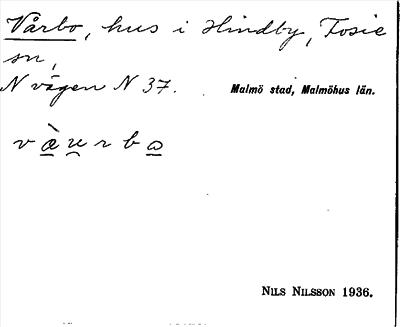 Vårbo, hus i Hindby, Fosie
sn,
N vägen N 37.
Malmö stad, Malmöhus län.
v æ̀ u̯ r b ɷ
NILS NILSSON 1936.